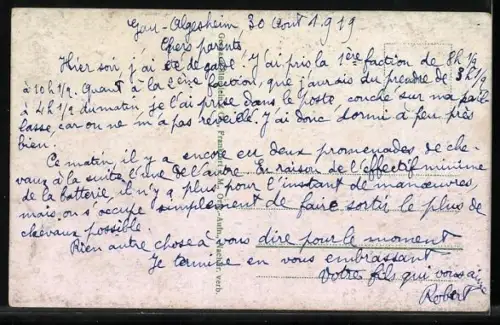 Gau-Algesheim 30 Août 1919
Chers parents,
Hier soir j'ai été de garde. J'ai pris la 1ère faction de 8h 1/2
à 10h 1/2. Quant à la 2ème faction, que j'aurais du prendre de 3h 1/2
à 4h 1/2 du matin je l'ai prise dans le poste couché sur ma pail-
lasse, car on ne m'a pas réveillé. J'ai donc dormi à peu près
bien.
Ce matin, il y a encore eu deux promenades de che-
vaux à la suite l'une de l'autre. En raison de l'effectif minime
de la batterie, il n'y a plus pour l'instant de manœuvres
mais on s'occupe simplement de faire sortir le plus de
chevaux possible.
Rien autre chose à vous dire pour le moment
Je termine en vous embrassant
Votre fils qui vous aime
Robert
verb.